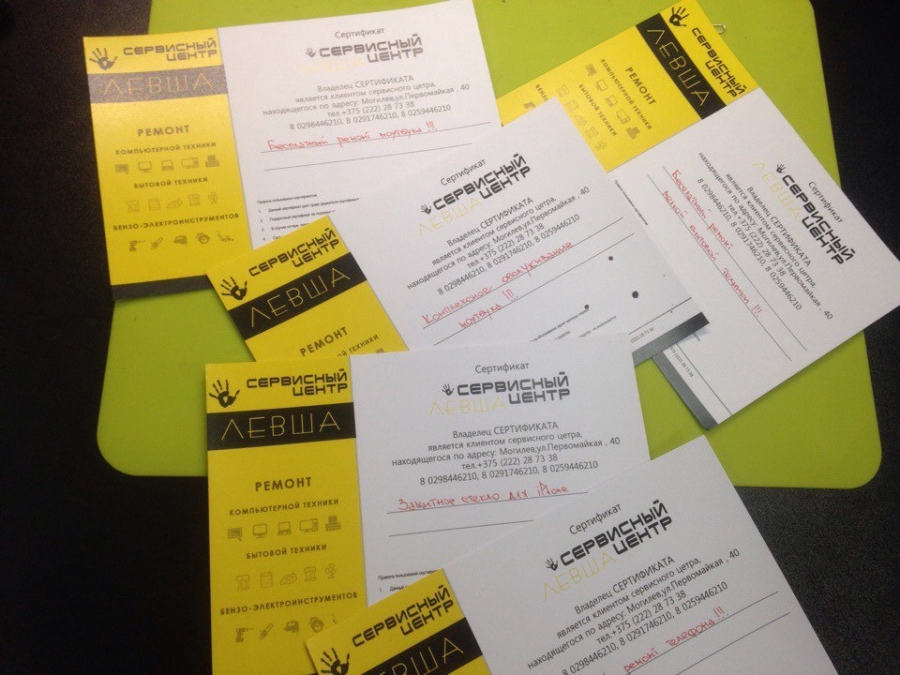 СЕРВИСНЫЙ
ЦЕНТР
ЛЕВША
РЕМОНТ
КОМПЬЮТЕРНОЙ ТЕХНИКИ
БЫТОВОЙ ТЕХНИКИ
БЕНЗО-ЭЛЕКТРОИНСТРУМЕНТОВ
Сертификат
СЕРВИСНЫЙ
ЦЕНТР
ЛЕВША
Владелец СЕРТИФИКАТА
является клиентом сервисного цетра,
находящегося по адресу: Могилев,ул.Первомайкая , 40
тел.+375 (222) 28 73 38
8 0298446210, 8 0291746210, 8 0259446210
Бесплатный ремонт ноутбука !!!
Правила пользования сертификатом
СЕРВИСНЫЙ
ЦЕНТР
ЛЕВША
РЕМОНТ
КОМПЬЮТЕРНОЙ ТЕХНИКИ
БЫТОВОЙ ТЕХНИКИ
Сертификат
СЕРВИСНЫЙ
ЦЕНТР
ЛЕВША
Владелец СЕРТИФИКАТА
является клиентом сервисного цетра,
находящегося по адресу: Могилев,ул.Первомайкая , 40
тел.+375 (222) 28 73 38
8 0298446210, 8 0291746210, 8 0259446210
Бесплатный ремонт
мелкой бытовой техники !!!
СЕРВИСНЫЙ
ЦЕНТР
ЛЕВША
РЕМОНТ
Сертификат
СЕРВИСНЫЙ
ЦЕНТР
ЛЕВША
Владелец СЕРТИФИКАТА
является клиентом сервисного цетра,
находящегося по адресу: Могилев,ул.Первомайкая , 40
тел.+375 (222) 28 73 38
8 0298446210, 8 0291746210, 8 0259446210
ноутбука !!!
СЕРВИСНЫЙ
ЦЕНТР
ЛЕВША
РЕМОНТ
КОМПЬЮТЕРНОЙ ТЕХНИКИ
БЫТОВОЙ ТЕХНИКИ
БЕНЗО-ЭЛЕКТРОИНСТРУМЕНТОВ
Сертификат
СЕРВИСНЫЙ
ЦЕНТР
ЛЕВША
Владелец СЕРТИФИКАТА
является клиентом сервисного цетра,
находящегося по адресу: Могилев,ул.Первомайкая , 40
тел.+375 (222) 28 73 38
8 0298446210, 8 0291746210, 8 0259446210
Защитное стекло для iPhone
СЕРВИСНЫЙ
ЦЕНТР
ЛЕВША
Сертификат
СЕРВИСНЫЙ
ЦЕНТР
ЛЕВША
Владелец СЕРТИФИКАТА
является клиентом сервисного цетра,
находящегося по адресу: Могилев,ул.Первомайкая , 40
тел.+375 (222) 28 73 38
8 0298446210, 8 0291746210, 8 0259446210
ремонт телефона!!!